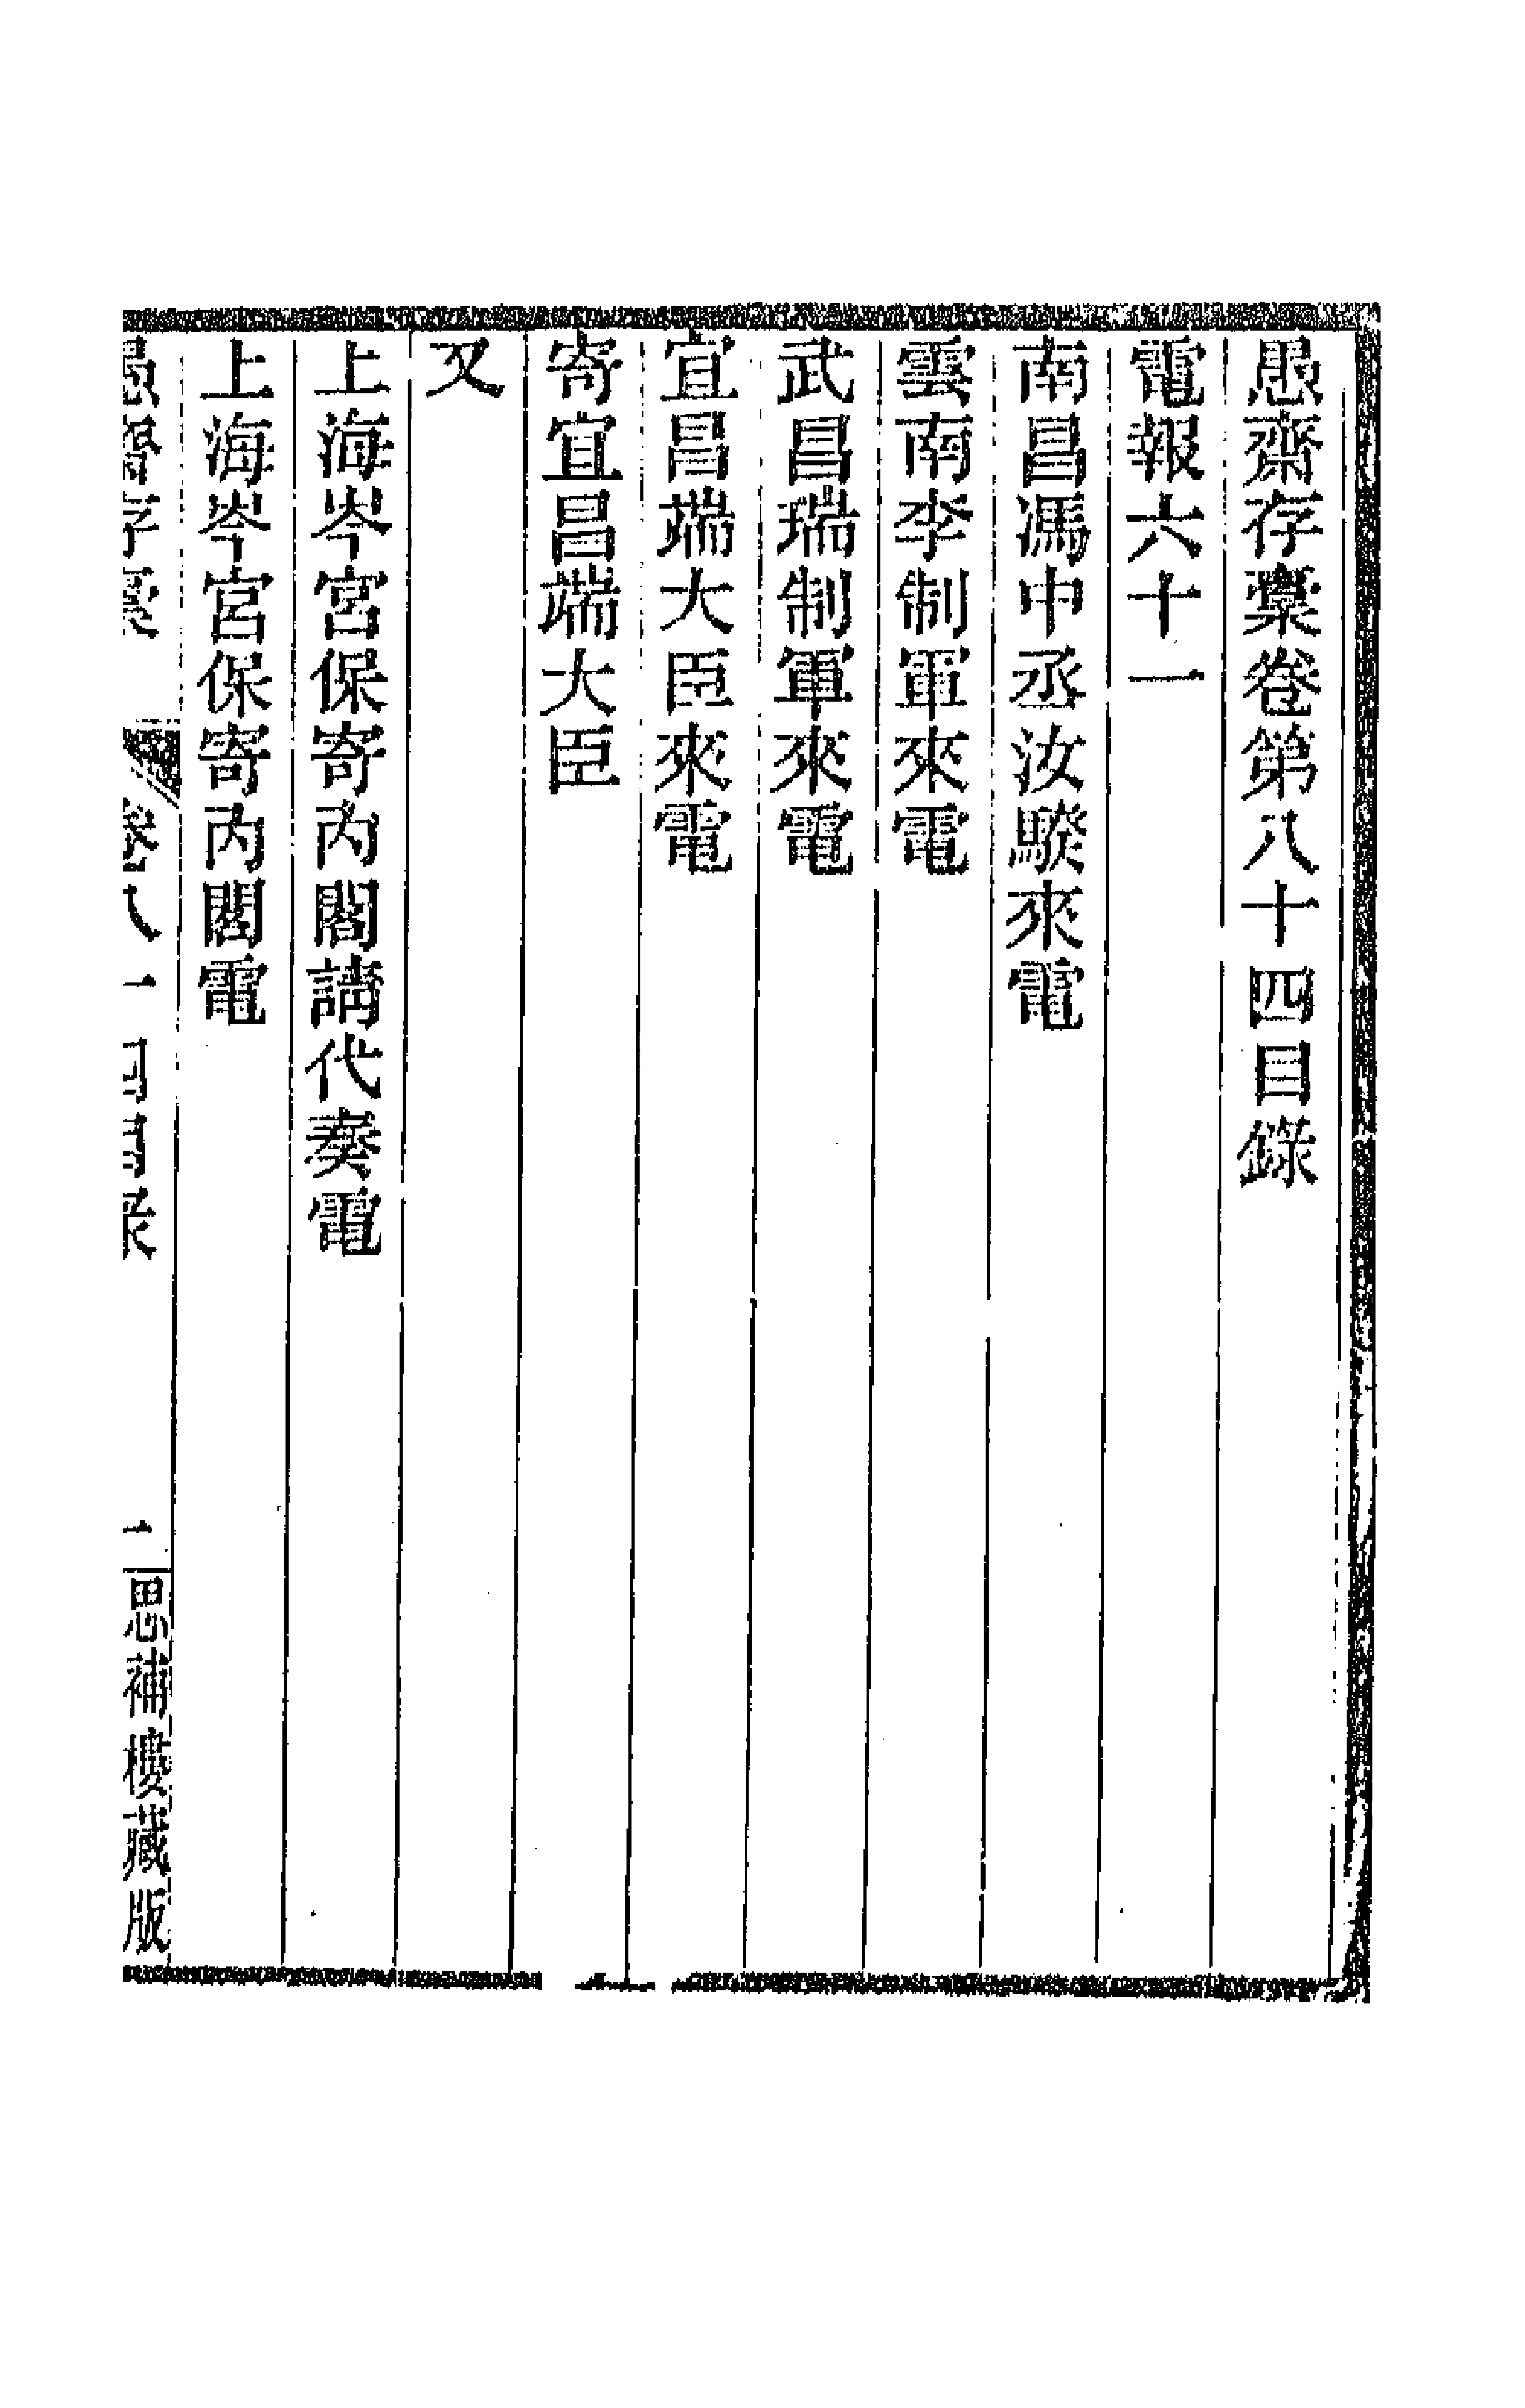 愚齋存稾卷第八十四目錄
電報六十一
南昌馮中丞汝騤來電
雲南李制軍來電
武昌瑞制軍來電
宜昌端大臣來電
寄宜昌端大臣
又
上海岑宮保寄內閣請代奏電
上海岑宮保寄內閣電
愚齋存稾 卷八十四目錄 一 思補樓藏版